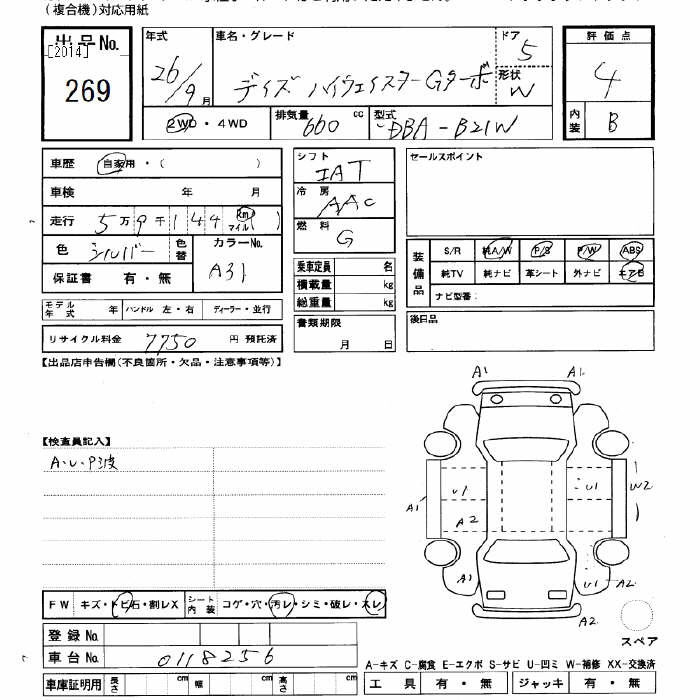 (複合機)対応用紙
出品No.
[2014]
269
年式 26/9月
車名・グレード デイズ ハイウェイスターGターボ
ドア 5
形状 W
評価点 4
内装 B
2WD・4WD
排気量 660 cc
型式 DBA-B21W
車歴 自家用・( )
車検 年 月
走行 5万9千144 Km マイル( )
色 シルバー 色替
カラーNo. A31
保証書 有・無
モデル年式 年 ハンドル 左・右 ディーラー・並行
リサイクル料金 7750 円 預託済
シフト IAT
冷房 AAC
燃料 G
乗車定員 名
積載量 kg
総重量 kg
書類期限
月 日
セールスポイント
装備品 S/R 純A/W P/S P/W ABS
純TV 純ナビ 革シート 外ナビ エアB
ナビ型番:
後日品
【出品店申告欄(不良箇所・欠品・注意事項等)】
【検査員記入】
A・U・P波
A1 A1
A1 U1 U1 W2
A2
A1 U1 A2
A2
スペア
FW キズ・トビ石・割レX シート内装 コゲ・穴・汚レ・シミ・破レ・スレ
登録No.
車台No. 0118256
車庫証明用 長さ cm 幅 cm 高さ cm
A-キズ C-腐食 E-エクボ S-サビ U-凹ミ W-補修 XX-交換済
工具 有・無 ジャッキ 有・無